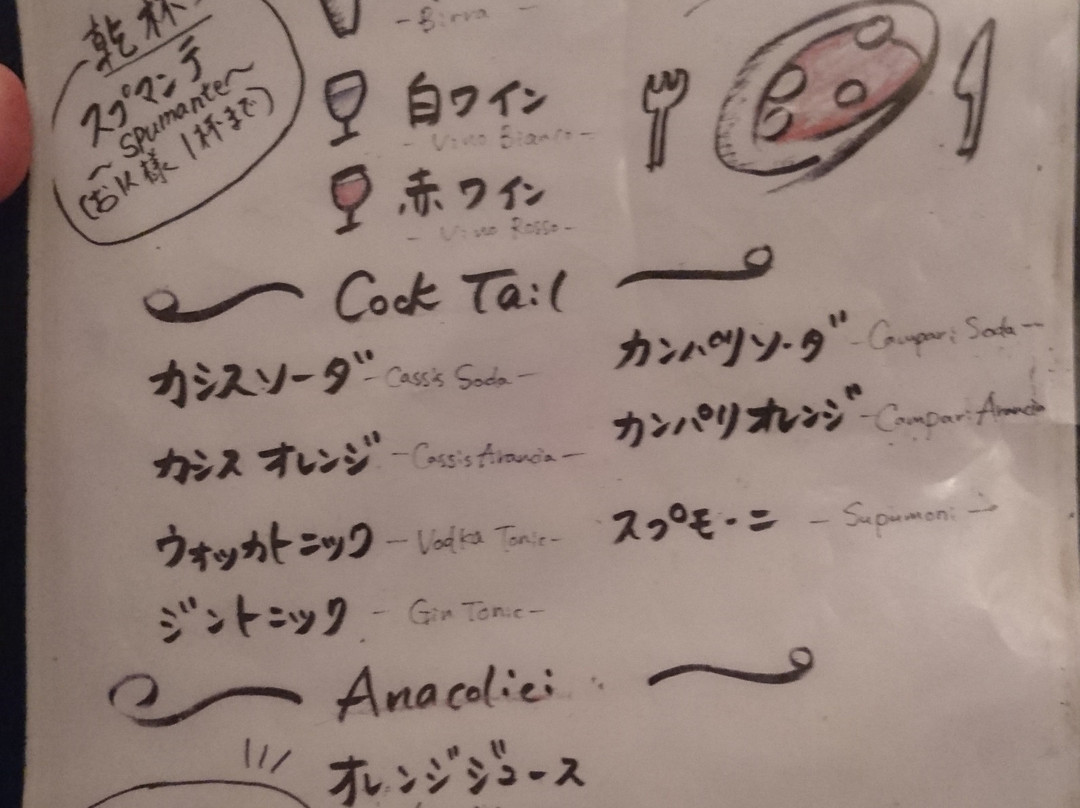 乾杯
スプマンテ
~ Spumante ~
(お1人様 1杯まで)
- Birra -
白ワイン
- Vino Bianco -
赤ワイン
- Vino Rosso -
Cock Tail
カシスソーダ - Cassis Soda -
カシス オレンジ - Cassis Arancia -
ウォッカトニック - Vodka Tonic -
ジントニック - Gin Tonic -
カンパリソーダ - Campari Soda -
カンパリオレンジ - Campari Arancia
スプモーニ - Supumoni -
Anacoliei
オレンジジュース